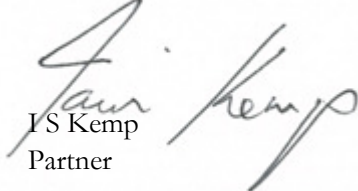 Iain Kemp
I S Kemp
Partner